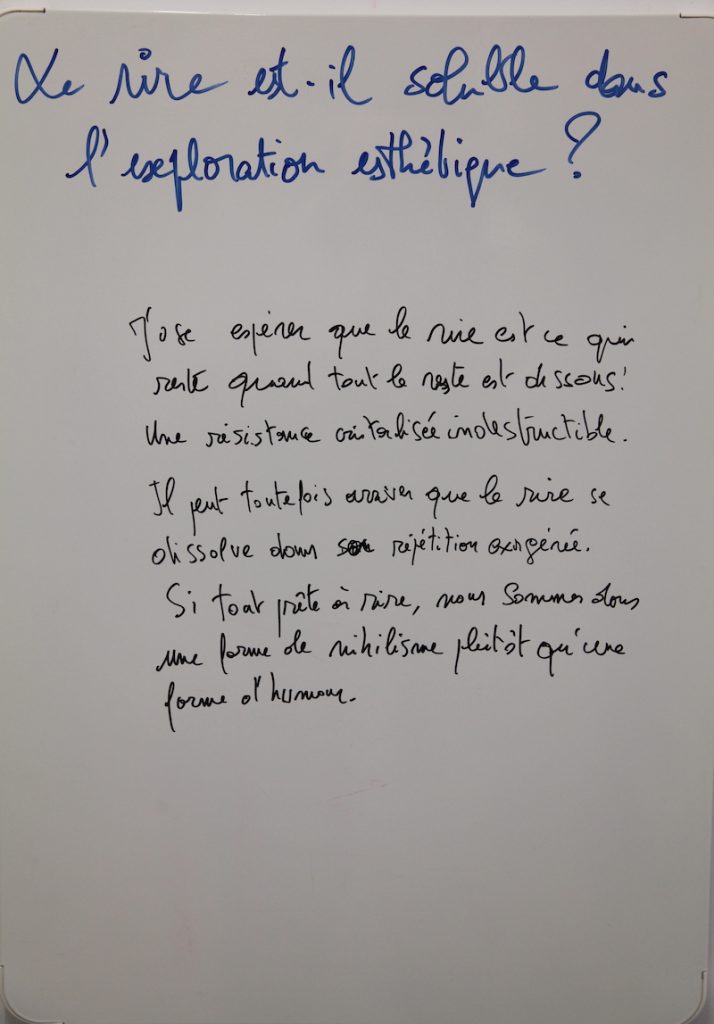 Le rire est-il soluble dans
l'exploration esthétique ?
J'ose espérer que le rire est ce qui
reste quand tout le reste est dissous !
Une résistance cristalisée indestructible.
Il peut toutefois arriver que le rire se
dissolve dans sa répétition exagérée.
Si tout prête à rire, nous sommes dans
une forme de nihilisme plutôt qu'une
forme d'humour.